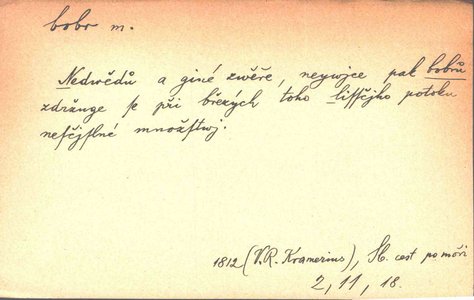 bobr m.
Nedwědů a giné zwěře, neywjce pak bobrů
zdržuge se při březých toho liffčjho potoku
nesčjslné množstwj.
1812 (V.R. Kramerius), Sb. cest po moři
2, 11, 18.